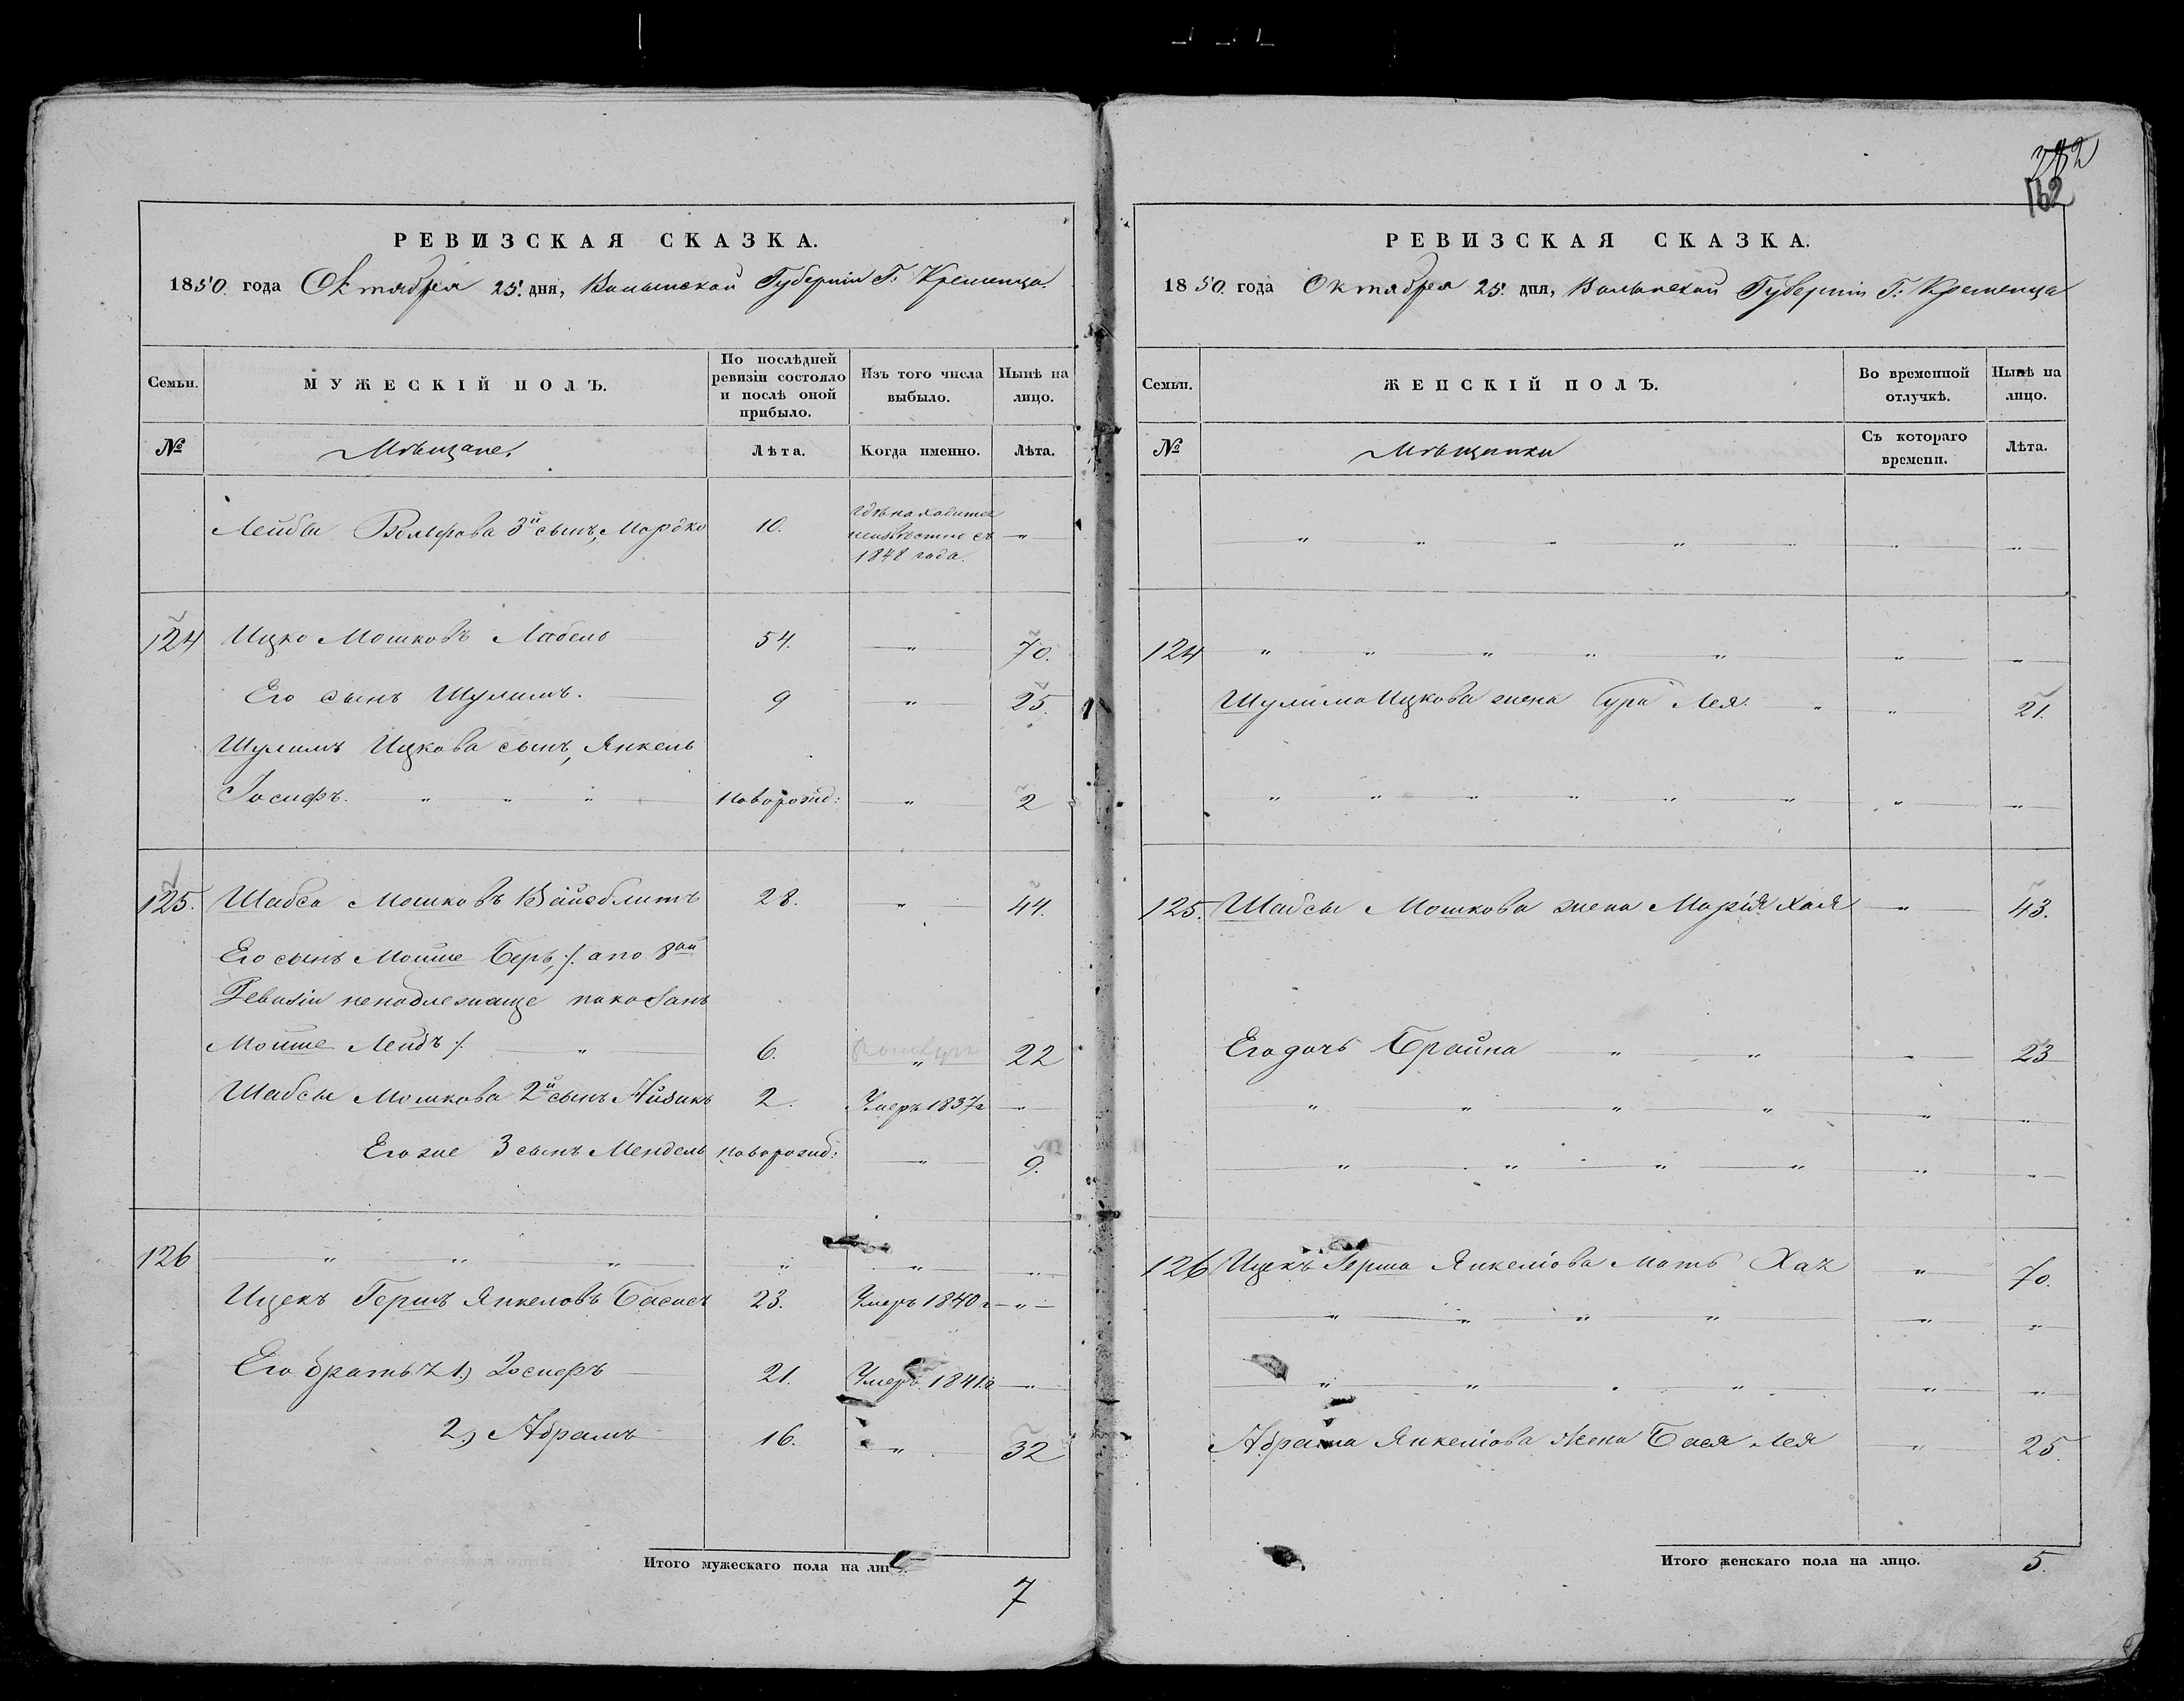 282
162
РЕВИЗСКАЯ СКАЗКА.
1850. года Октября 25. дня, Волынской Губерніи Г. Кременца.
Семьи. МУЖЕСКІЙ ПОЛЪ. По послѣдней ревизіи состояло и послѣ оной прибыло. Изъ того числа выбыло. Нынѣ на лицо.
№ Мѣщане. Лѣта. Когда именно. Лѣта.
Лейбы Вольфова 3й сынъ, Мордко 10. гдѣ находится неизвестно съ 1848 года. "
124 Ицко Мошковъ Лабель 54. " 70.
Его сынъ Шулимъ. 9 " 25.
Шулимъ Ицкова сынъ, Янкель
Іосифъ. " " " новорожд: " 2
125. Шабса Мошковъ Вайсблитъ 28. " 44.
Его сынъ Мошше Беръ, /. а по 8ой
Ревизіи ненадлежаще показанъ
Мошше Лейбъ /. " 6. " 22
Шабсы Мошкова 2й сынъ Айзикъ 2. Умеръ 1837г "
Его же 3 сынъ Мендель новорожд: " 9.
126 " " " " " "
Ицекъ Гершъ Янкеловъ Басисъ 23. Умеръ 1840г "
Его братья 1.) Іосифъ 21. Умеръ 1841г "
2.) Абрамъ 16. " 32
Итого мужескаго пола на лиц
7
РЕВИЗСКАЯ СКАЗКА.
1850. года Октября 25. дня, Волынской Губерніи Г. Кременца
Семьи. ЖЕНСКІЙ ПОЛЪ. Во временной отлучкѣ. Нынѣ на лицо.
№ Мѣщанки Съ котораго времени. Лѣта.
" " " " " " "
124 " " " " " " "
Шулима Ицкова жена Сура Лея. " " 21.
" " " " " " " "
125. Шабсы Мошкова жена Марія Хая " 43.
Его дочь Брайна " " " 23
" " " " " "
" " " " " "
126 Ицекъ Герша Янкеліова мать Хая " 70.
" " " " " "
" " " " "
Абрама Янкеліова Жена Бася Лея " 25.
Итого женскаго пола на лицо. 5.